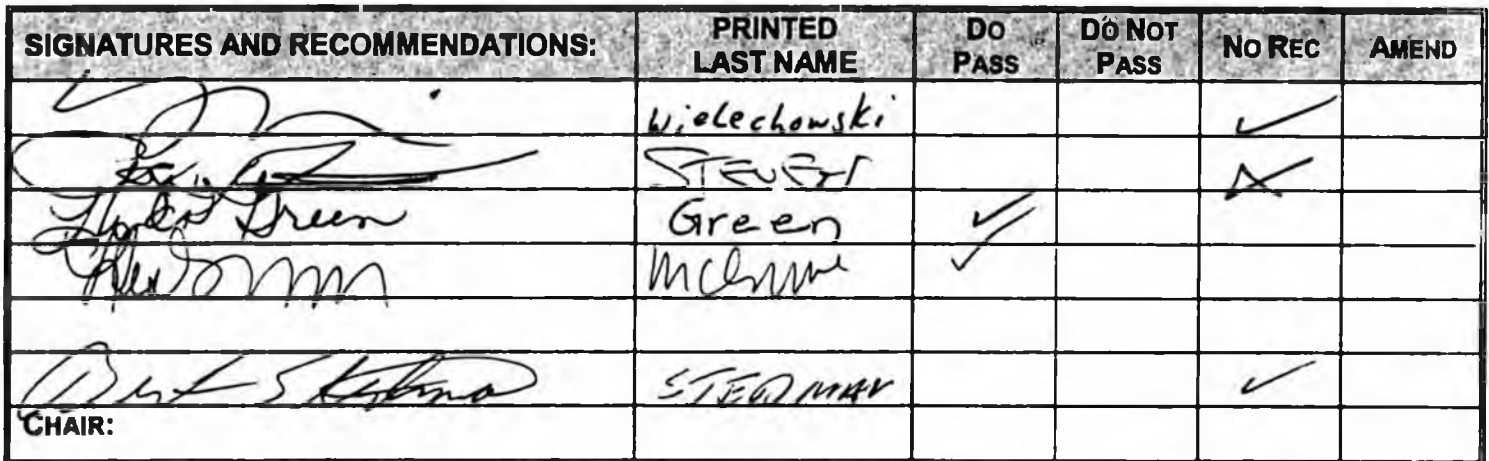 SIGNATURES AND RECOMMENDATIONS: PRINTED LAST NAME DO PASS DO NOT PASS NO REC AMEND
Wielechowski ✓
Green Green ✓
✓
Bert Stedman STEDMAN ✓
CHAIR: